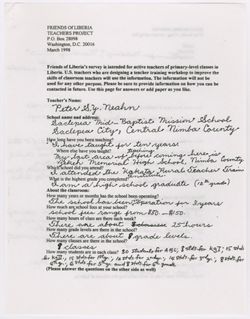 FRIENDS OF LIBERIA
TEACHERS PROJECT
P.O. Box 28098
Washington, D.C. 20016
March 1998
Friends of Liberia's survey is intended for active teachers of primary-level classes in
Liberia. U.S. teachers who are designing a teacher training workshop to improve the
skills of classroom teachers will use the information. The information will not be
used for any other purpose. Please be sure to provide information on how you can be
contacted in future. Use this page for answers or add paper as you like.
Teacher's Name:
Peter S.Y. Neahn
School name and address:
Saclepea Mid-Baptist Mission School
Saclepea City, Central Nimba County
How long have you been teaching?
I have taught for ten years!
Where else have you taught?
My last area before coming here is
High School, Nimba County
What school did you attend?
I attended the Kakata Rural Teacher Train
What is the highest grade you completed?
I am a high school graduate (12th grade)
About the classrooms:
How many years or months has the school been operating?
The school has been operation for 2 years
How much are school fees at your school?
school fees range from
How many hours of class are there each week?
There are about 25 hours
How many grade levels are there in the school?
There are about 8 grade levels.
How many classes are there in the school?
8 classes
How many students are in each class? 30 students for ABC,
(Please answer the questions on the other side as well)